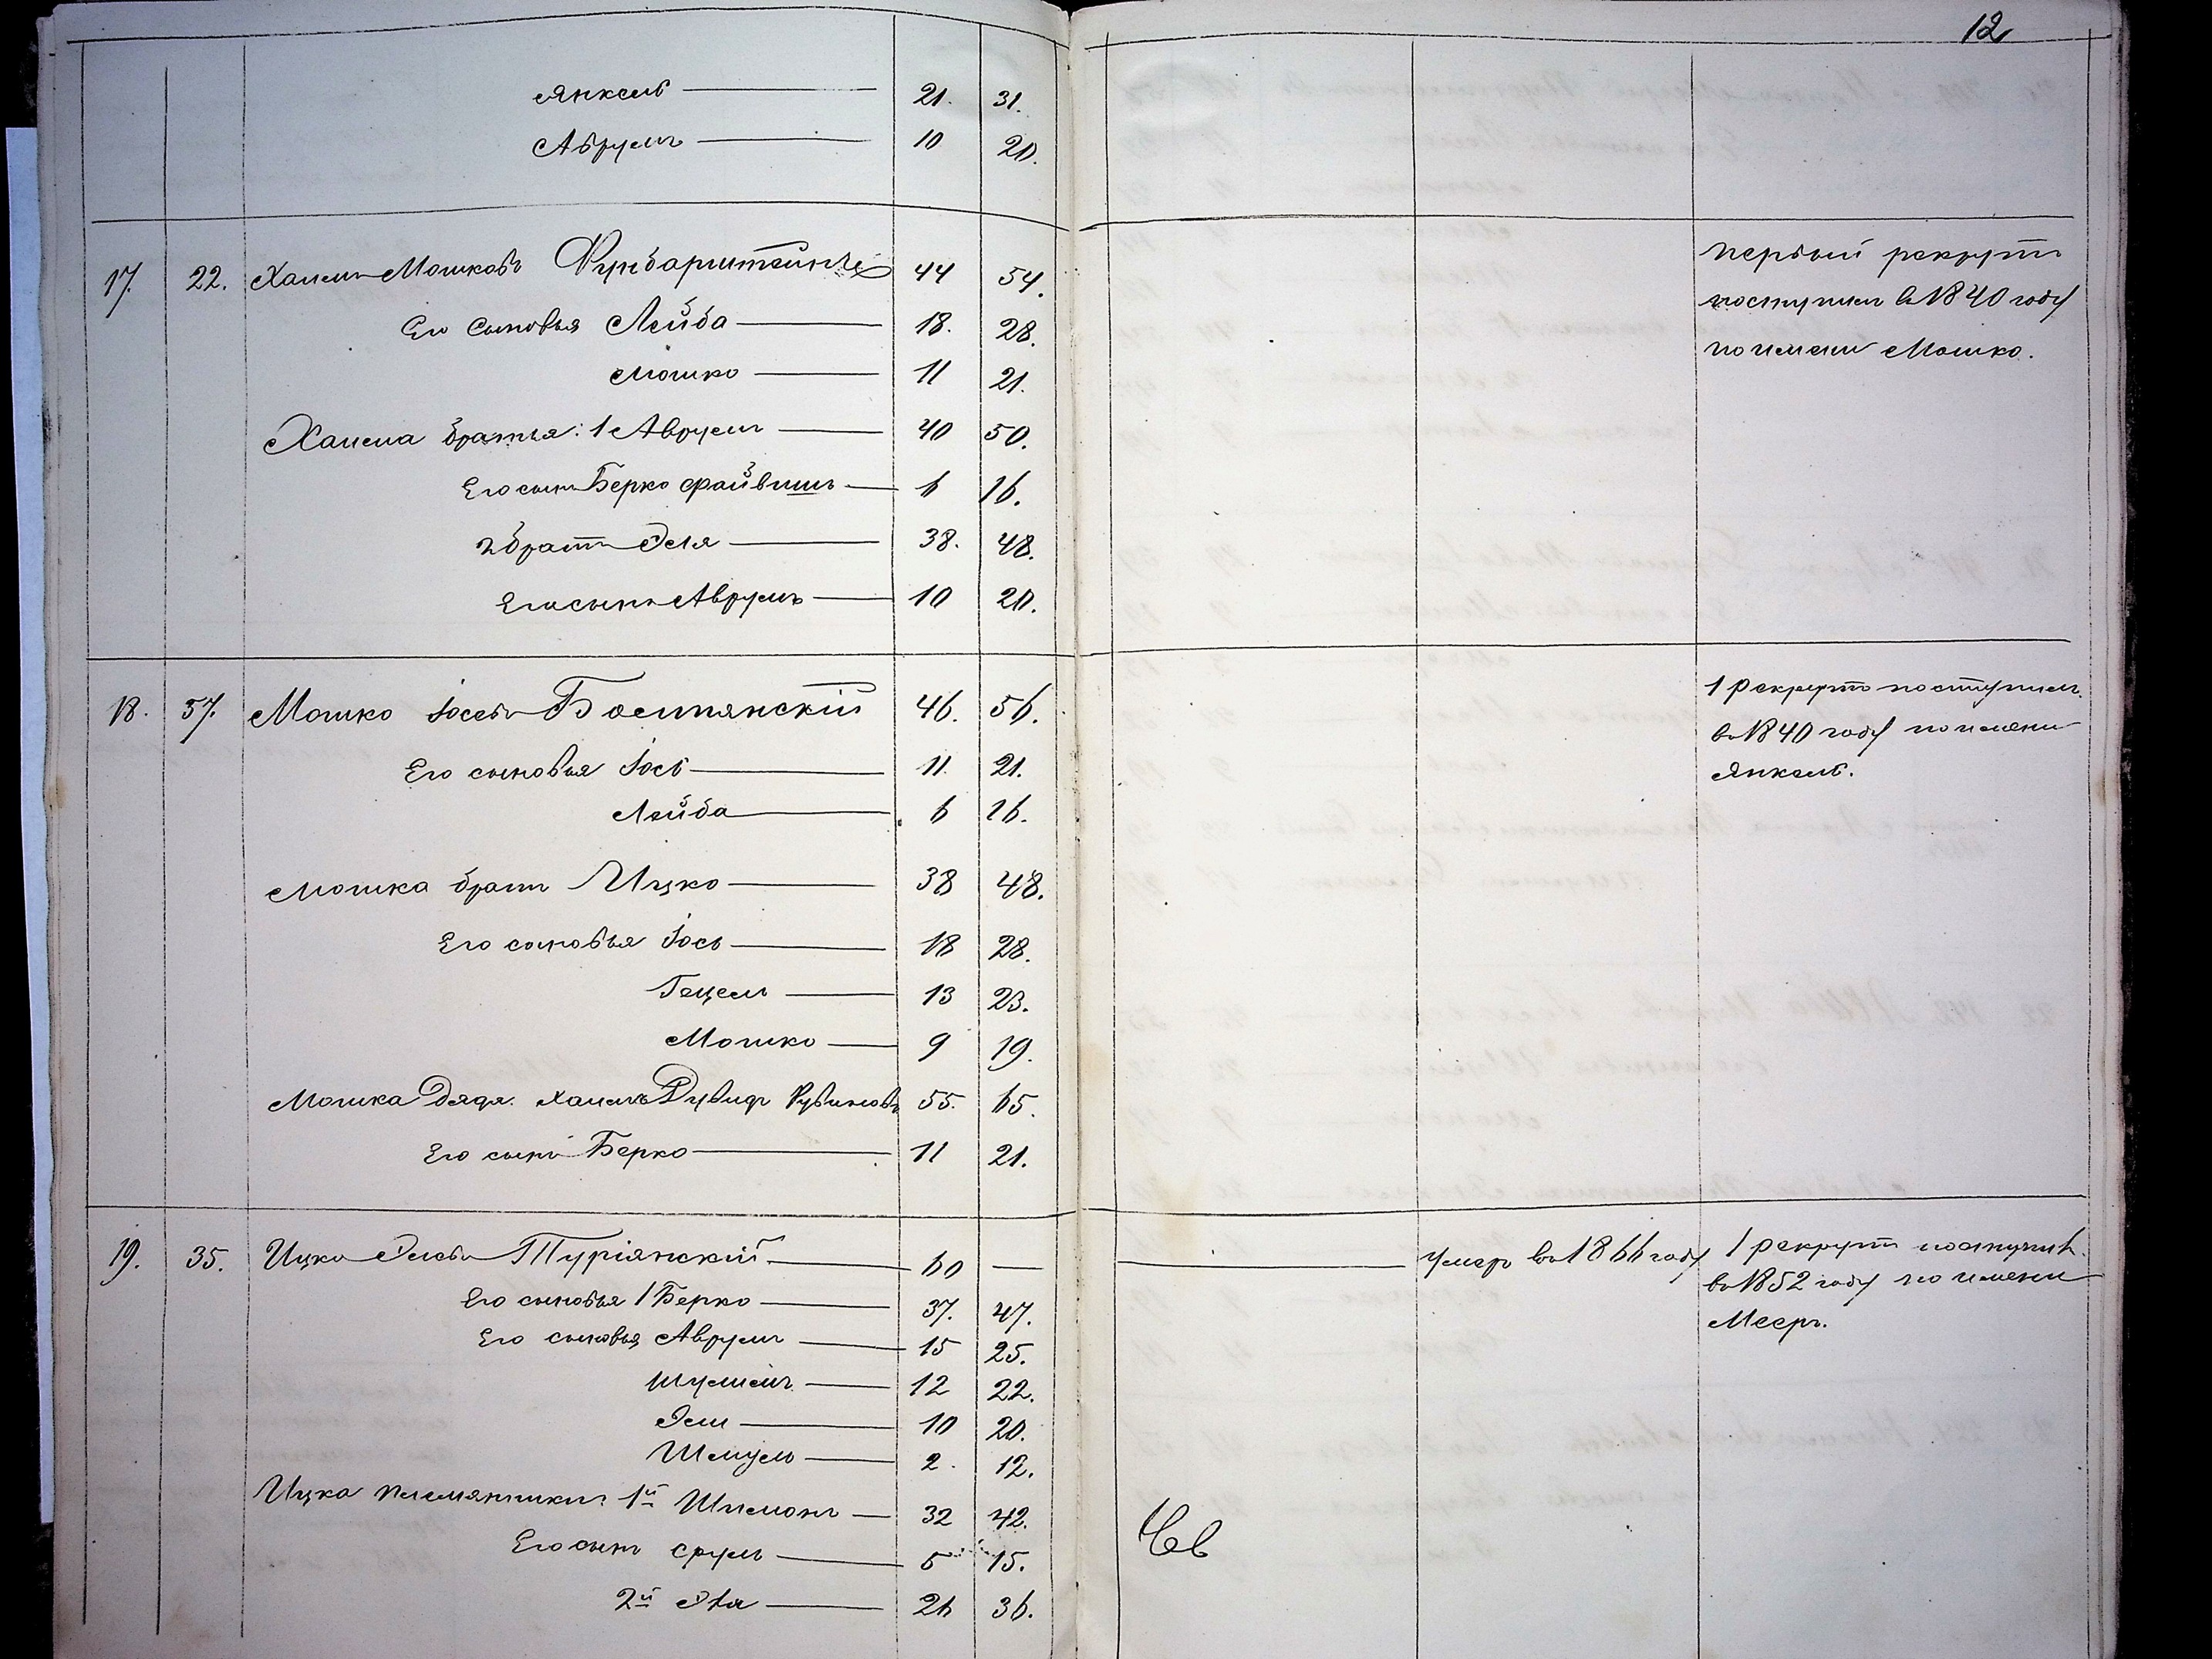 12
Янкель 21. 31.
Аврумъ 10 20.
17. 22. Хаимъ Мошковъ 44 54.
Его сыновья Лейба 18. 28.
Мошко 11 21.
Хаима братья: 1 Аврумъ 40 50.
Его сынъ Берко Файвишъ 6 16.
2 братъ Эля 38. 48.
Его сынъ Аврумъ 10 20.
первый рекрутъ
поступилъ въ 1840 году
по имени Мошко.
18. 37. Мошко Іосевъ 46. 56.
Его сыновья Іось 11. 21.
Лейба 6 16.
Мошка братъ Ицко 38 48.
Его сыновья Іось 18 28.
Гецель 13 23.
Мошко 9 19.
Мошка дядя Хаимъ Рувинъ Рувиновъ 55. 65.
Его сынъ Берко 11 21.
1 рекрутъ поступилъ
въ 1840 году по имени
Янкель.
19. 35. Ицко Элевъ Туріянскій 60 —
Умеръ въ 1866 году
Его сыновья 1 Берко 37. 47.
Его сыновья Аврумъ 15 25.
12 22.
Эли 10 20.
Шмуль 2. 12.
Ицка племянники 1й Шимонъ 32 42.
Его сынъ Сруль 5 15.
2й Эля 26 36.
1 рекрутъ поступилъ
въ 1852 году по имени
Мееръ.